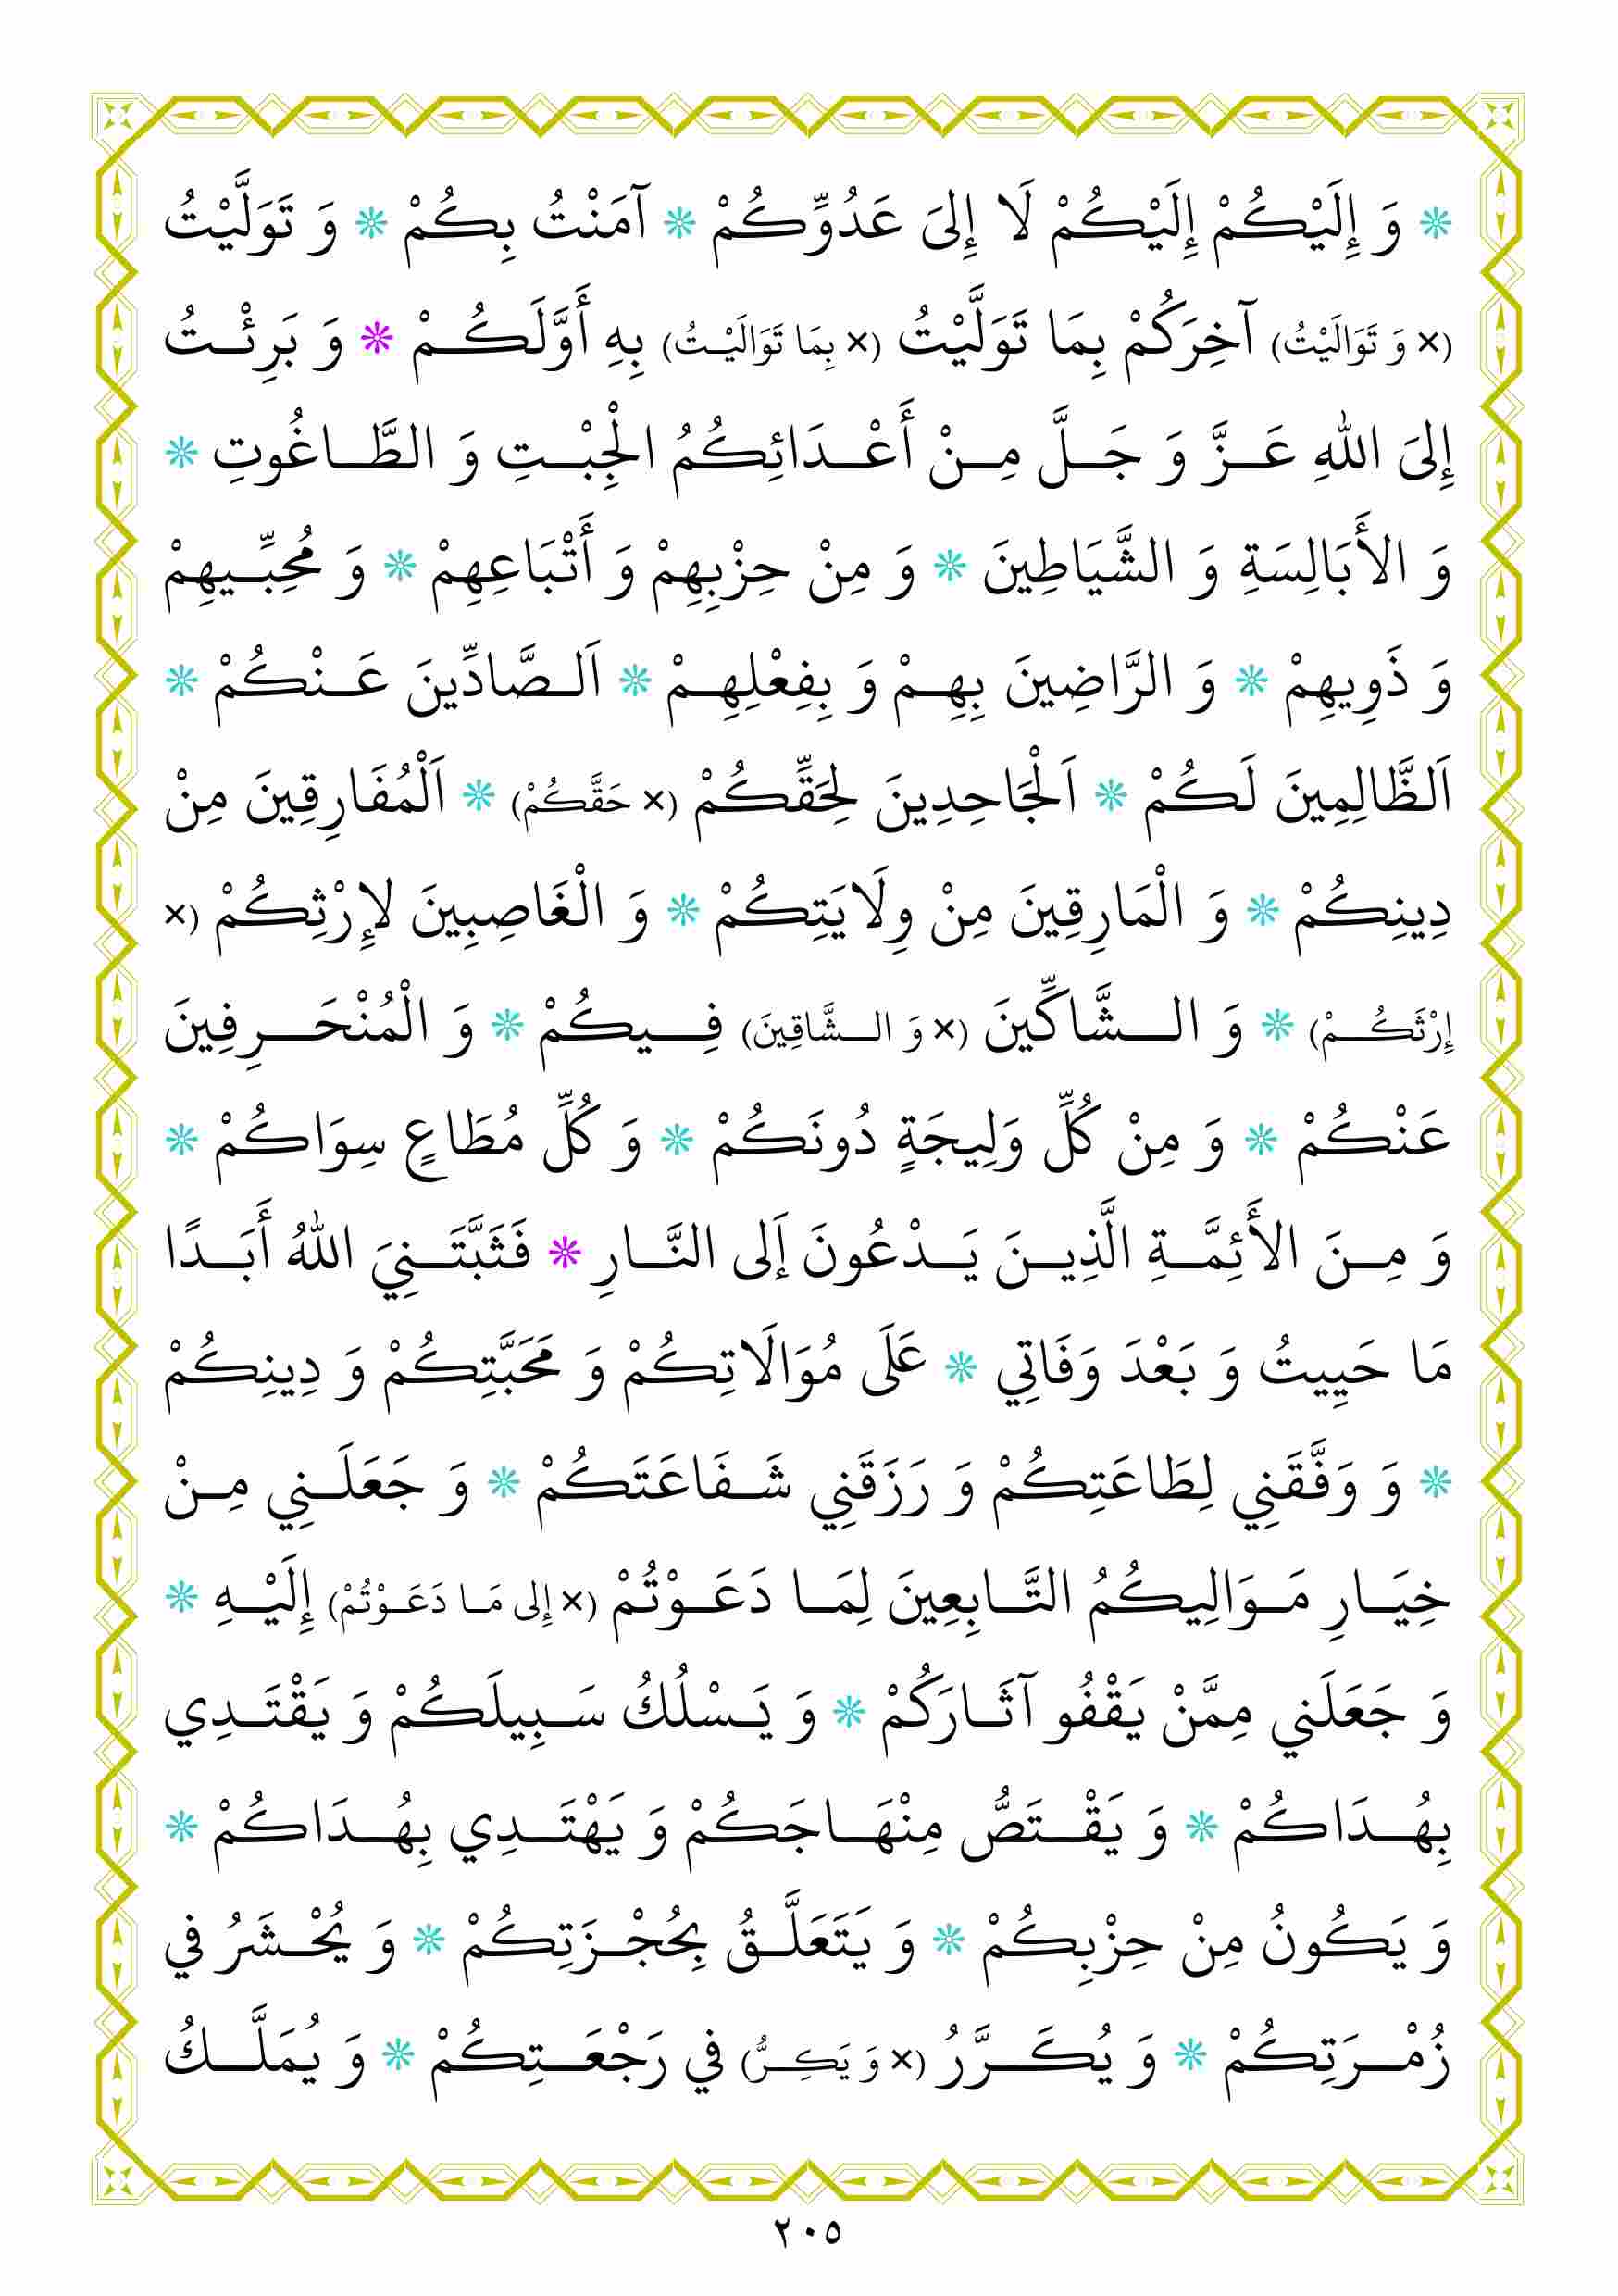 * وَ إِلَيْكُمْ إِلَيْكُمْ لَا إِلىَ عَدُوِّكُمْ * آمَنْتُ بِكُمْ * وَ تَوَلَّيْتُ
(× وَ تَوَالَيْتُ) آخِرَكُمْ بِمَا تَوَلَّيْتُ (× بِمَا تَوَالَيْتُ) بِهِ أَوَّلَكُمْ * وَ بَرِئْتُ
إِلىَ اللهِ عَزَّ وَ جَلَّ مِنْ أَعْدَائِكُمُ الْجِبْتِ وَ الطَّاغُوتِ *
وَ الأَبَالِسَةِ وَ الشَّيَاطِينَ * وَ مِنْ حِزْبِهِمْ وَ أَتْبَاعِهِمْ * وَ مُحِبِّيهِمْ
وَ ذَوِيهِمْ * وَ الرَّاضِينَ بِهِمْ وَ بِفِعْلِهِمْ * اَلصَّادِّينَ عَنْكُمْ *
اَلظَّالِمِينَ لَكُمْ * اَلْجَاحِدِينَ لِحَقِّكُمْ (× حَقَّكُمْ) * اَلْمُفَارِقِينَ مِنْ
دِينِكُمْ * وَ الْمَارِقِينَ مِنْ وِلَايَتِكُمْ * وَ الْغَاصِبِينَ لإِرْثِكُمْ (×
إِرْثَكُمْ) * وَ الشَّاكِّينَ (× وَ الشَّاقِينَ) فِيكُمْ * وَ الْمُنْحَرِفِينَ
عَنْكُمْ * وَ مِنْ كُلِّ وَلِيجَةٍ دُونَكُمْ * وَ كُلِّ مُطَاعٍ سِوَاكُمْ *
وَ مِنَ الأَئِمَّةِ الَّذِينَ يَدْعُونَ إَلى النَّارِ * فَثَبَّتَنِيَ اللهُ أَبَدًا
مَا حَيِيتُ وَ بَعْدَ وَفَاتِي * عَلَى مُوَالَاتِكُمْ وَ مَحَبَّتِكُمْ وَ دِينِكُمْ
* وَ وَفَّقَنِي لِطَاعَتِكُمْ وَ رَزَقَنِي شَفَاعَتَكُمْ * وَ جَعَلَنِي مِنْ
خِيَارِ مَوَالِيكُمُ التَّابِعِينَ لِمَا دَعَوْتُمْ (× إِلى مَا دَعَوْتُمْ) إِلَيْهِ *
وَ جَعَلَني مِمَّنْ يَقْفُو آثَارَكُمْ * وَ يَسْلُكُ سَبِيلَكُمْ وَ يَقْتَدِي
بِهُدَاكُمْ * وَ يَقْتَصُّ مِنْهَاجَكُمْ وَ يَهْتَدِي بِهُدَاكُمْ *
وَ يَكُونُ مِنْ حِزْبِكُمْ * وَ يَتَعَلَّقُ بِحُجْزَتِكُمْ * وَ يُحْشَرُ في
زُمْرَتِكُمْ * وَ يُكَرَّرُ (× وَ يَكِرُّ) في رَجْعَتِكُمْ * وَ يُمَلَّكُ
٢٠٥